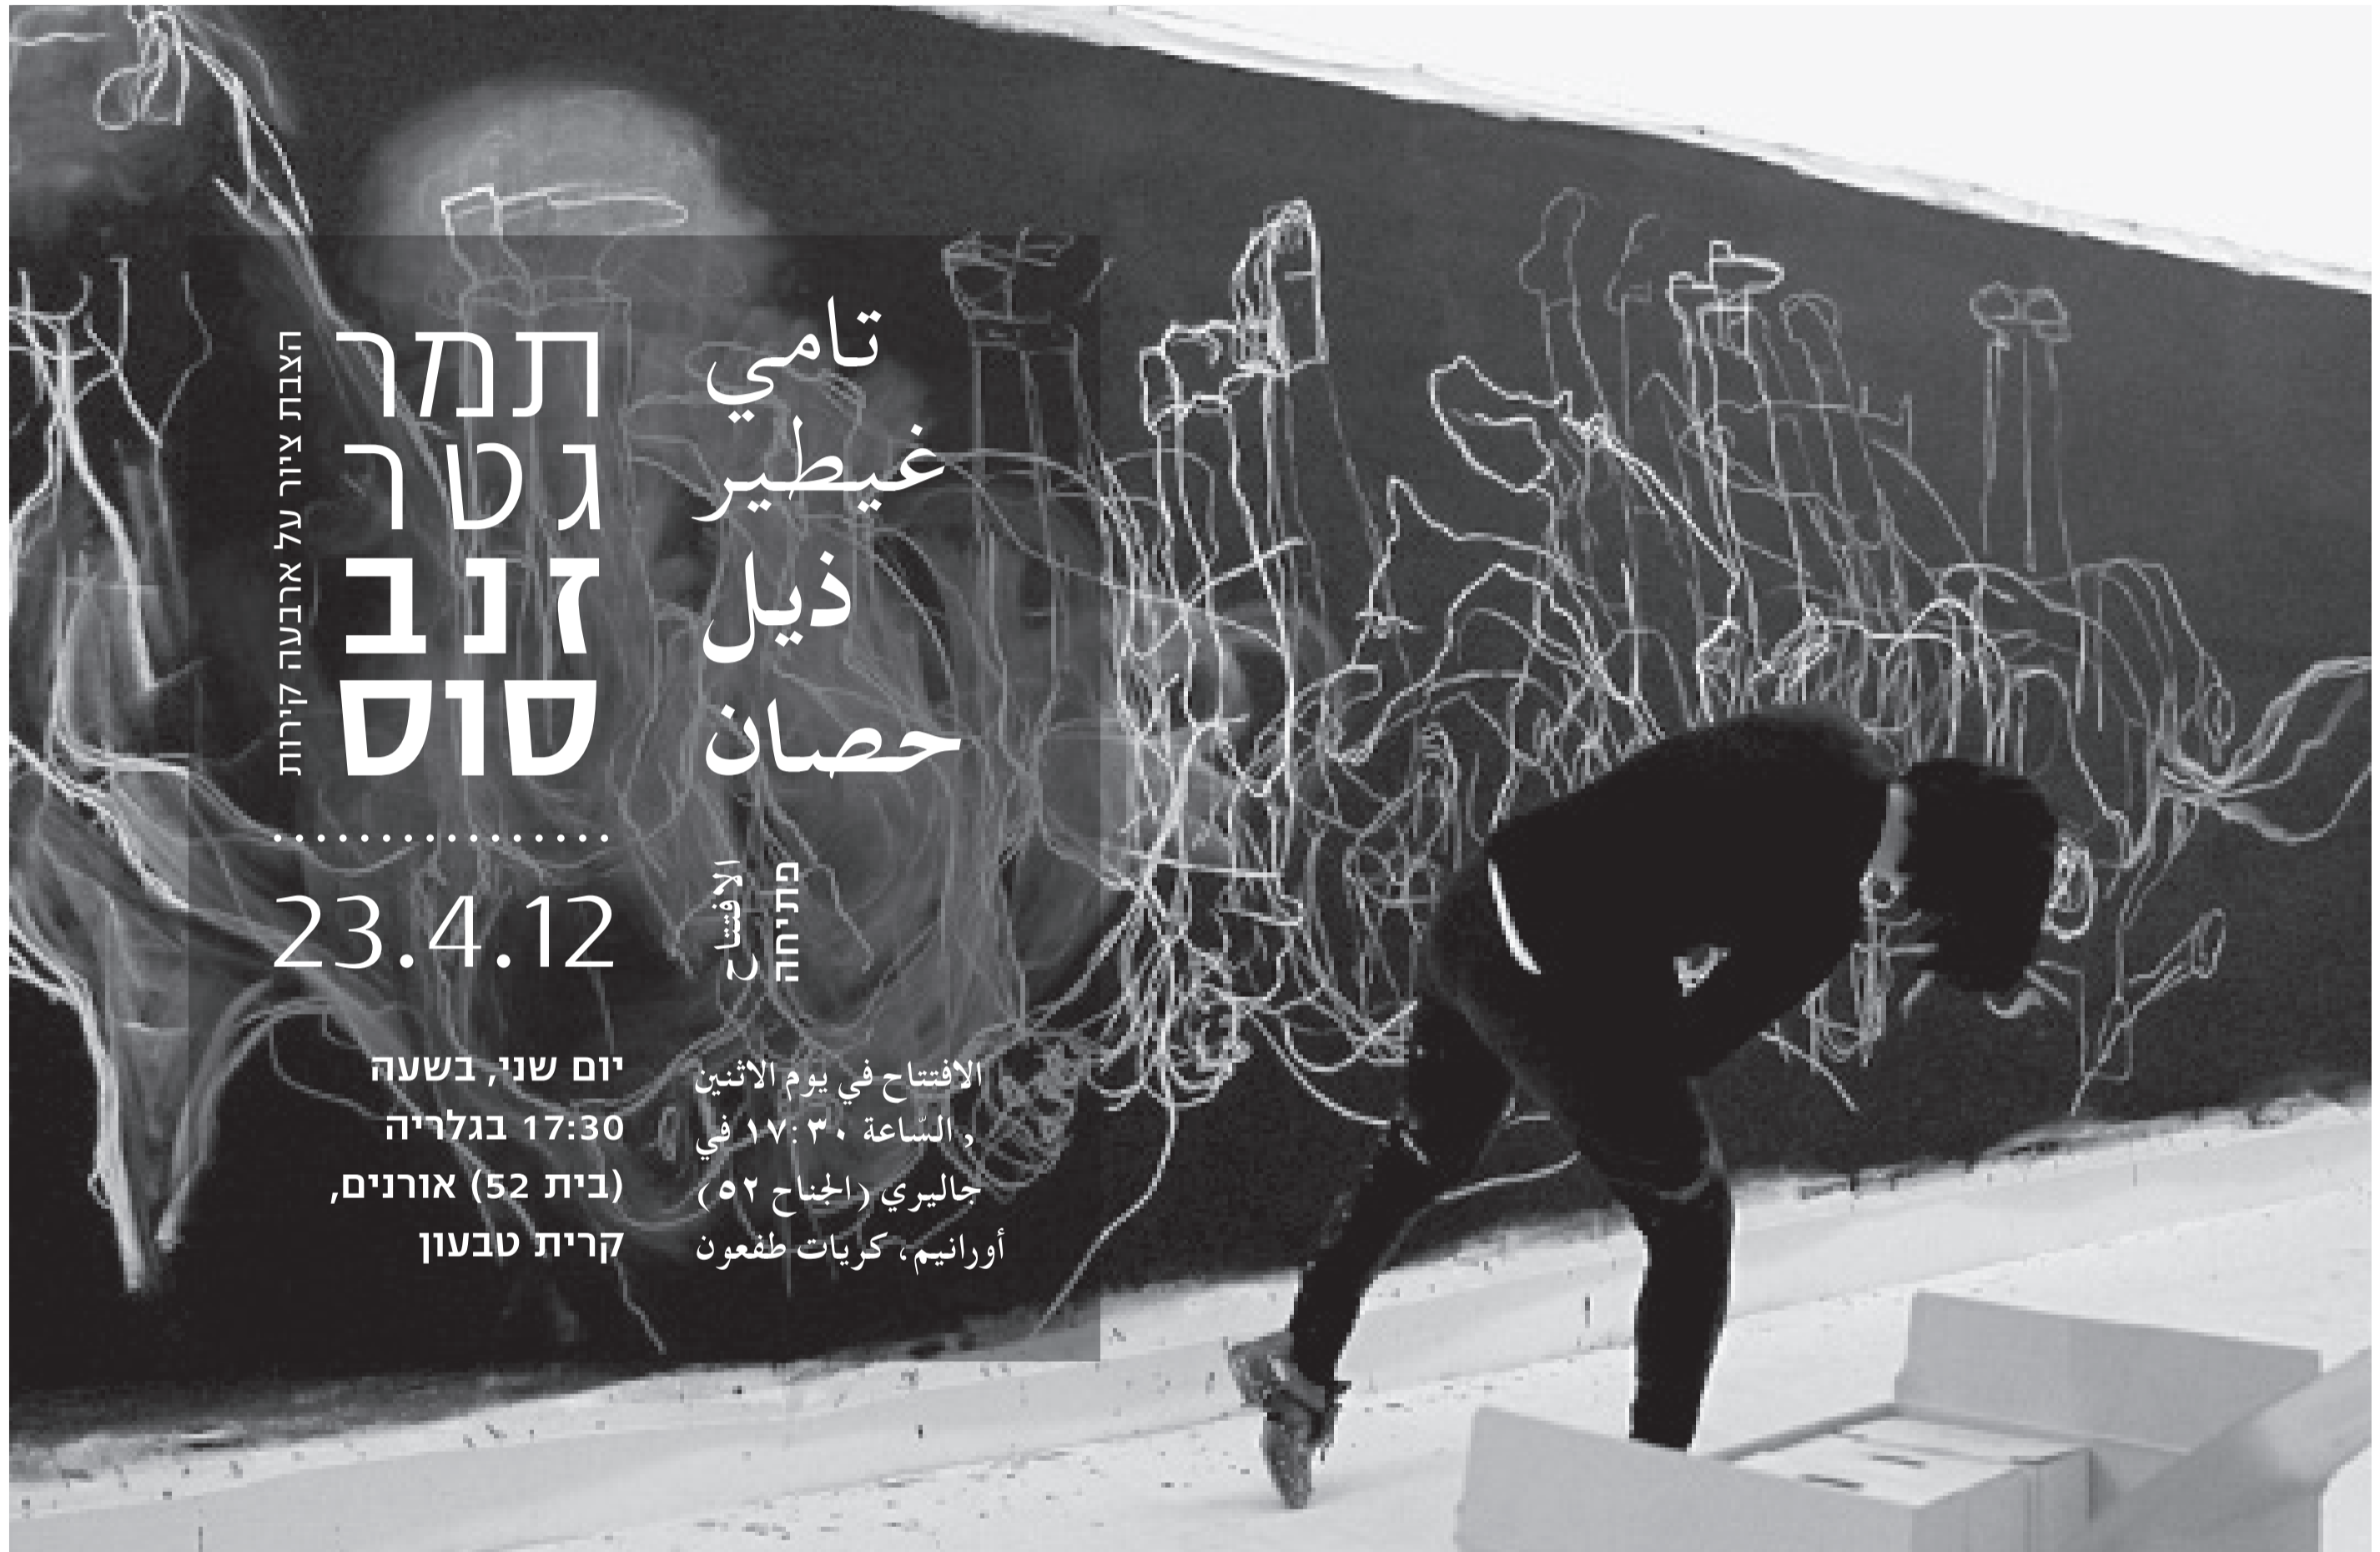 תמר
גטר
זנב
סוס
הצבת ציור על ארבעה קירות
تامي
غيطير
ذيل
حصان
23.4.12
الافتتاح
פתיחה
יום שני, בשעה
17:30 בגלריה
(בית 52) אורנים,
קרית טבעון
الافتتاح في يوم الاثنين
, السّاعة ١٧:٣٠ في
جاليري (الجناح ٥٢)
أورانيم، كريات طفعون